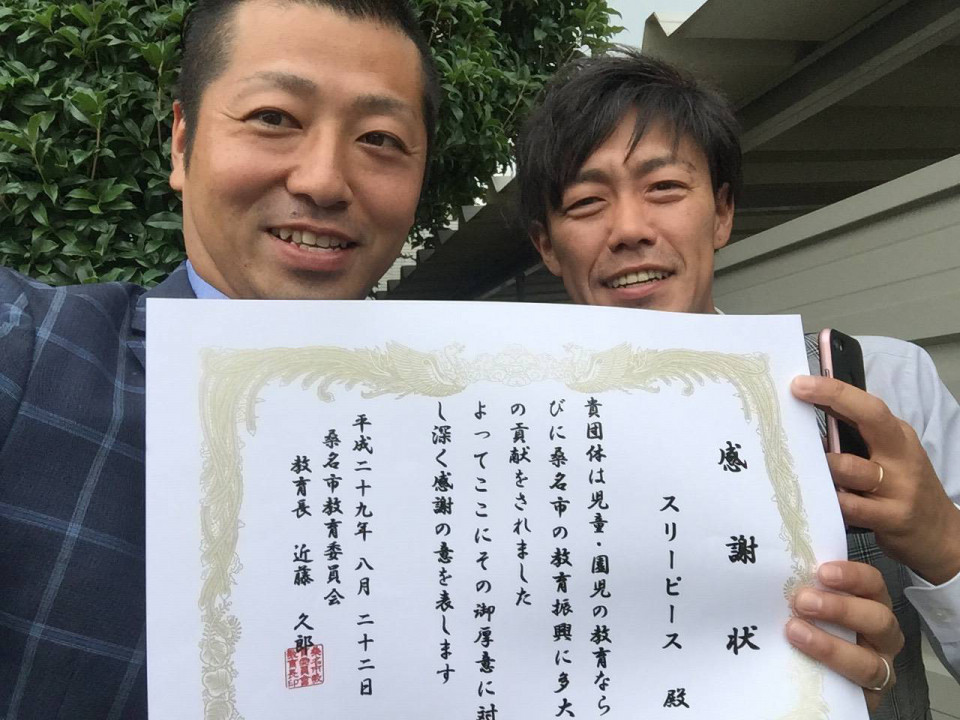 感謝状
スリーピース 殿
貴団体は児童・園児の教育なら
びに桑名市の教育振興に多大
の貢献をされました
よってここにその御厚意に対
し深く感謝の意を表します
平成二十九年 八月 二十二日
桑名市教育委員会
教育長 近藤 久郎